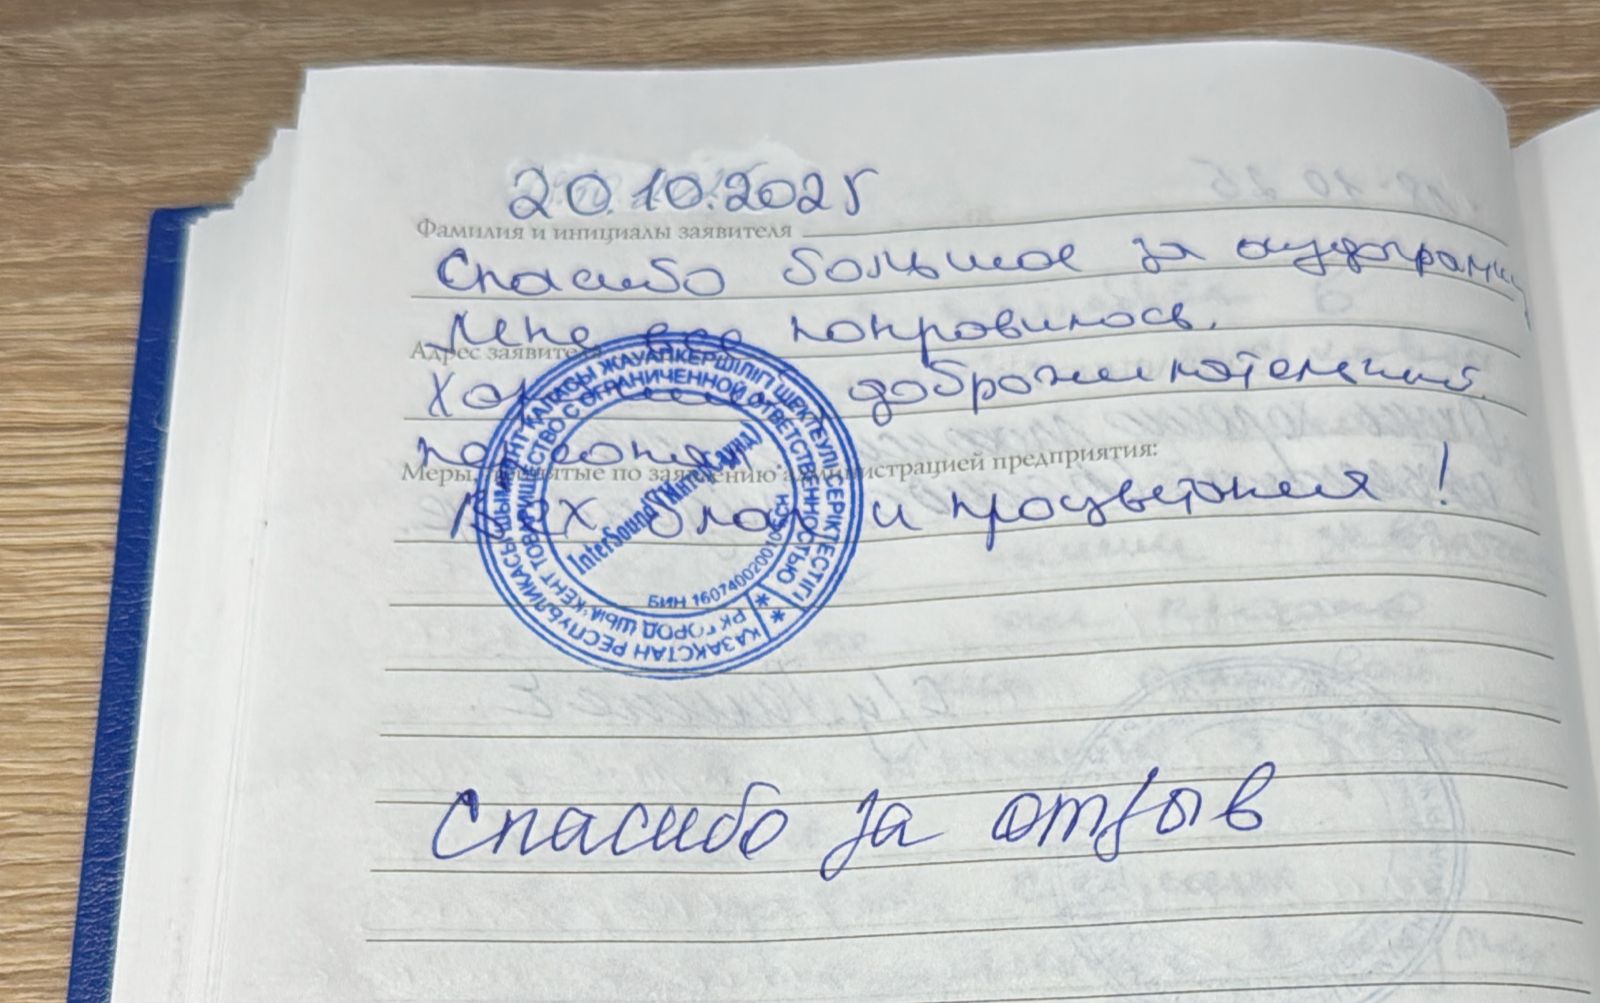 20.10.2025
Фамилия и инициалы заявителя
Спасибо большое за аудограмму
Мне все понравилось.
Адрес заявителя
доброжелательный
Меры, принятые по заявлению администрацией предприятия:
Всех благ и процветания!
ҚАЗАҚСТАН РЕСПУБЛИКАСЫ ШЫМКЕНТ ҚАЛАСЫ ЖАУАПКЕРШІЛІГІ ШЕКТЕУЛІ СЕРІКТЕСТІГІ
РК ГОРОД ШЫМКЕНТ ТОВАРИЩЕСТВО С ОГРАНИЧЕННОЙ ОТВЕТСТВЕННОСТЬЮ
InterSound (ИнтерСаунд)
БИН
Спасибо за отзыв